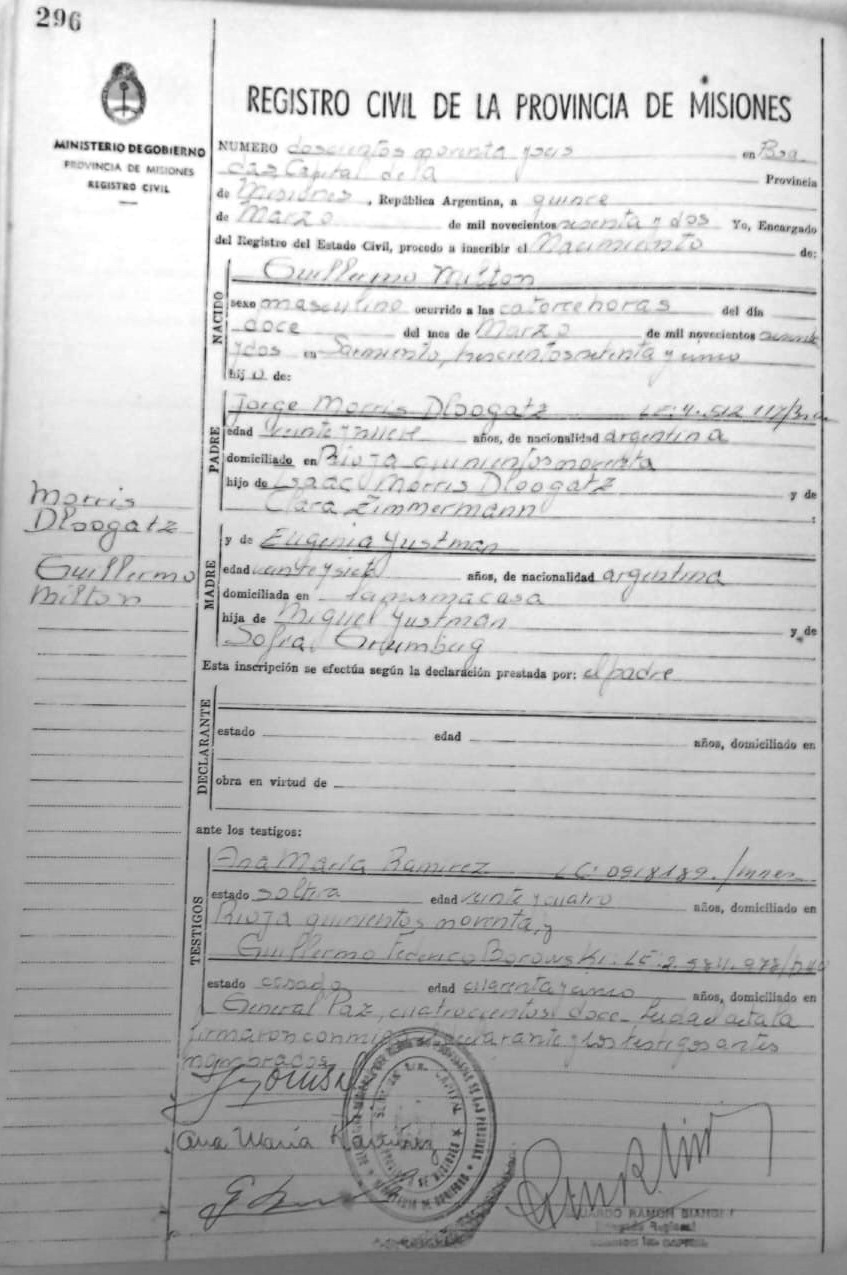 296
REGISTRO CIVIL DE LA PROVINCIA DE MISIONES
MINISTERIO DE GOBIERNO
PROVINCIA DE MISIONES
REGISTRO CIVIL
NUMERO doscientos noventa y seis en Posa
das Capital de la Provincia
de Misiones, República Argentina, a quince
de Marzo de mil novecientos sesenta y dos Yo, Encargado
del Registro del Estado Civil, procedo a inscribir el Nacimiento de:
NACIDO
Guillermo Milton
sexo masculino ocurrido a las catorce horas del día
doce del mes de Marzo de mil novecientos sesenta
y dos en Sarmiento, trescientos setenta y cinco
hij o de:
PADRE
Jorge Morris Dloogatz LE: 4.512.117
edad veinte y nueve años, de nacionalidad argentina
domiciliado en Rioja quinientos noventa
hijo de Isaac Morris Dloogatz y de
Clara Zimmermann :
Morris
Dloogatz
Guillermo
Milton
MADRE
y de Eugenia Yustman
edad veinte y siete años, de nacionalidad argentina
domiciliada en la misma casa
hija de Miguel Yustman y de
Sofia
Esta inscripción se efectúa según la declaración prestada por: el padre
DECLARANTE
estado edad años, domiciliado en
obra en virtud de
ante los testigos:
TESTIGOS
Ana María Ramirez LC: 0918189.
estado soltera edad veinte y cuatro años, domiciliado en
Rioja quinientos noventa, y
Guillermo Federico Borowski: LE: 2.584.978
estado casado edad cuarenta y cinco años, domiciliado en
General Paz, cuatrocientos doce. Leida el acta la
firmaron conmigo el declarante y los testigos antes
nombrados
Ana María
EDUARDO RAMON
Delegado Regional